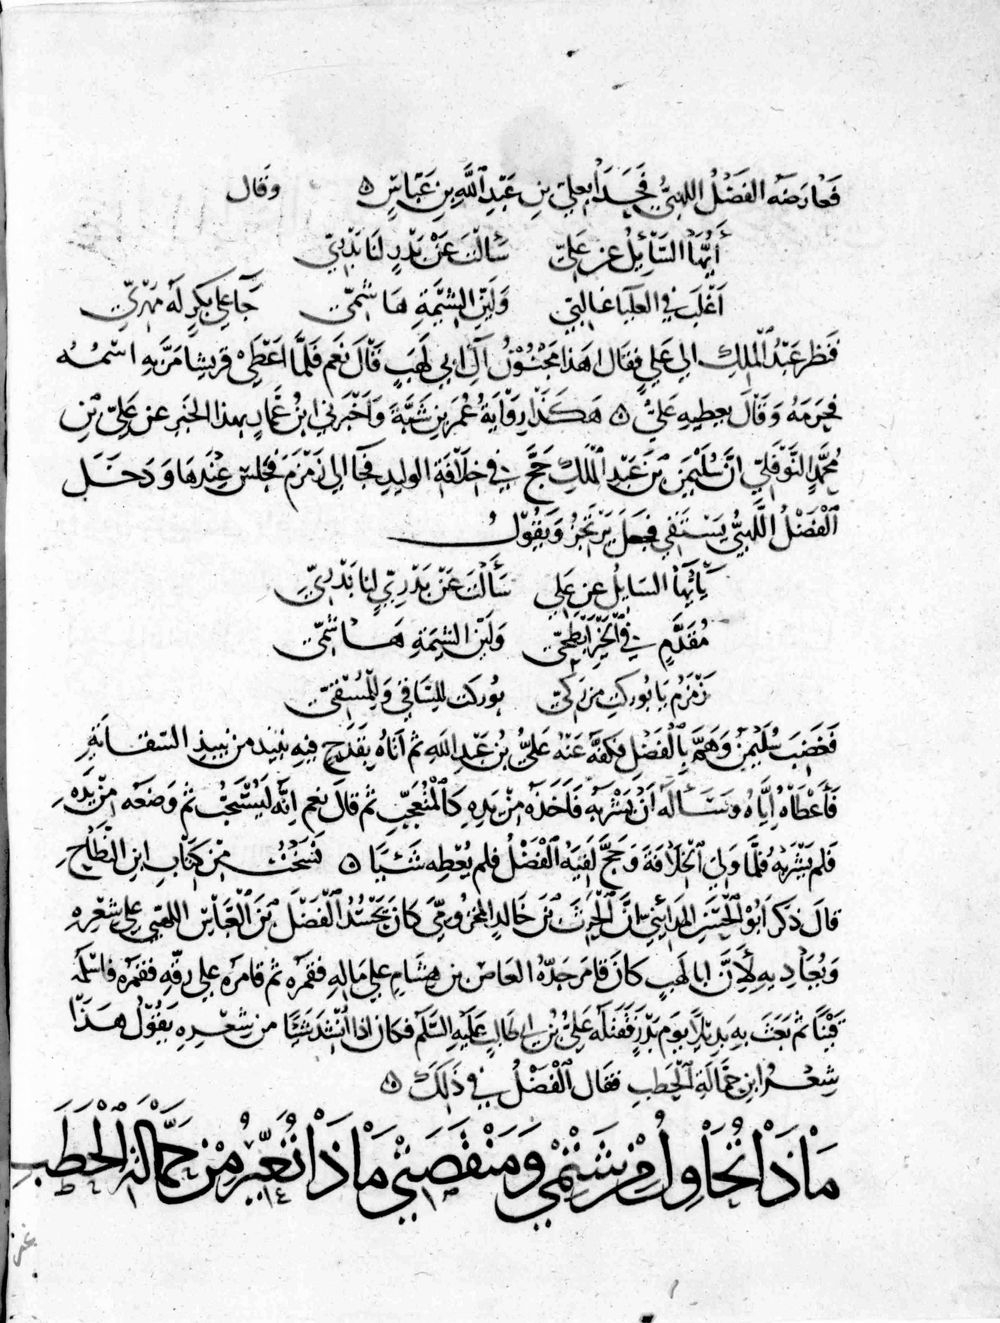 فَعَارضَه الفَضْلُ اللهَبيُّ فَحَدَا بعليّ بنِ عَبْدِ اللَّهِ بنِ عَبَّاسٍ ه وقال
أَيُّهَا السَّائِلُ عن عَليّ سَألتَ عَنْ بَدْرٍ لنَا بَدْريّ
أغْلبَ في العَليَا غالبيّ وَلَيّنِ الشِّيمَةِ هَاشميّ جَا علي بكرٍ لَه مَهْريّ
فَنظرَ عَبْدُ الْمَلِكِ الي عَليٍ فقال اهَذا مَجْنُوْنُ آلِ ابي لَهَبٍ قَالَ نَعم فَلمَّا اعَطَي قريشا مَرَّ بهِ اسْمُهُ
فحرَمَهُ وَقَالَ يعطيهِ عَليٌّ ه هَكَذَا رِوَايَةُ عُمَرَ بنِ شَبَّةَ وَاخْبَرني ابنُ عَمَّارٍ بهذا الخبرِ عن عَلِيّ بْنِ
مُحَمَّدٍ النَّوفَليّ انَّ سُلَيْمنَ بْنَ عَبْدِ الْمَلِكِ حَجَّ في خلَافَةِ الوليدِ فجَآ الي زَمْزمَ فجَلسَ عِنْدَهَا وَدَخَل
الْفَضْلُ اللَّهبيُّ يَسْتَقي فجعَل يَرْتَجزُ وَيَقُوْلُ
يَا ايُّهَا السَايلُ عن عَلي سَأَلْتَ عَنْ بَدْرٍ لنا بَدْرِيّ
مُقَدَّمٍ في الْخَيْرِ ابْطَحيّ وَلَيّنِ الشِّيمَةِ هَاشميّ
زَمْزمُ يَا بُوركتِ من رَكيّ بُوركتِ للسَّاقي وَللمُسْتَقيّ
فَغَضِبَ سُلَيْمنُ وَهَمَّ بِالْفَضْلِ فكفَّه عَنْه عَليُّ بنُ عَبْد اللهِ ثم اتَاهُ بقَدحٍ فيهِ نبيذ من نبيذِ السّقَايَةِ
فَأعْطَاهُ إيَّاهُ وسَأَلَه أنْ يَشْرَبَهُ فَاخَذَه منْ يَدِهِ كَالْمُتعَجِّبِ ثم قالَ نعم انّه لَيُسْتَحَبُّ ثم وضعَه من يَدهِ
فلم يَشْرَبهُ فلمَّا وَليَ الْخِلَافَةَ وَحَجَّ لَقيَهُ الْفَضْلُ فلم يُعْطِه شَيْيًا ه نَسَختُ منْ كِتَابِ ابنِ النطَّاحِ
قالَ ذكرَ ابُوْ الْحَسَنِ المدَائنيُّ انَّ الْحرثَ بْنَ خالدٍ المخزوميّ كانَ يَحْسُدُ الْفَضْلَ بْنَ الْعَبَّاسِ اللهَبي علي شعْرهِ
وَيُعَادِيهِ لأَنَّ ابا لَهَبٍ كانَ قامَر جَدَّهُ العَاصَ بن هِشَامٍ علي مَالهِ فقمَرَه ثم قامَرَه علي رقّهِ فقمَرَه فاسْلَمَه
قَيْنًا ثم بَعَثَ بهِ بَديلًا يوم بَدْرٍ فَقَتلَه عَليُّ بنُ ابي طَالِبٍ عَلَيهِ السَّلَم فكانَ اذا انْشَدَ شَيْئًا من شعْرهِ يقُوْلُ هَذَا
شعْرُ ابنِ حمَّالَةِ الْحَطبِ فقال الْفَضْلُ في ذَلكَ ه
مَاذَا تُحَاوِلُ مِنْ شَتْمِي وَمَنْقَصَتِي مَاذَا تُعَيِّرُ مِنْ حَمَّالَةِ الْحَطَبِ